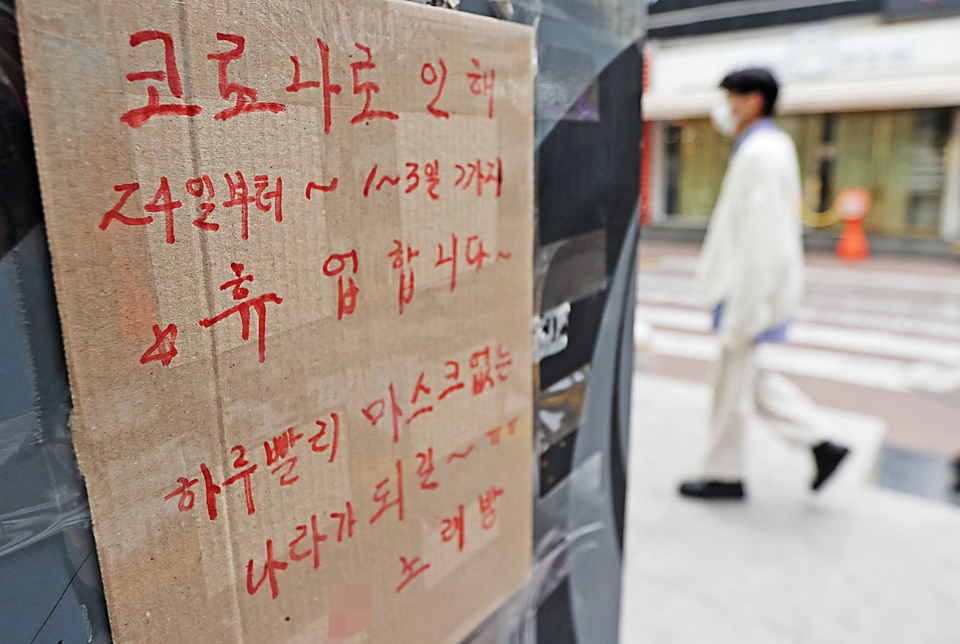 코로나로 인해
24일부터 ~ 1~3일 까지
☆ 휴 업 합니다~
하루빨리 마스크없는
나라가 되길~ ㅠㅠ
노래방